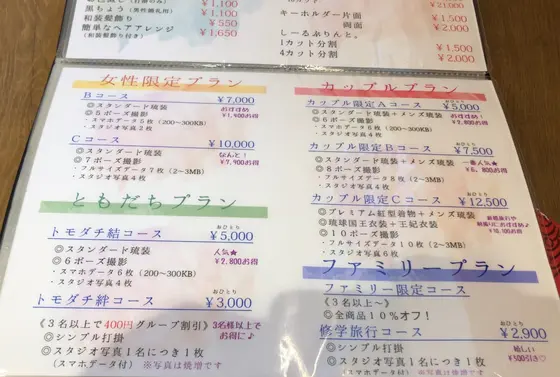 ¥1,100
黒もょう(男性額礼用) ¥1,100
和装髪飾り ¥550
簡単なヘアアレンジ ¥1,650
(和装髪飾り付き)
¥21,000
キーホルダー片面 ¥1,500
両面 ¥2,000
しーるぷりんと。
1カット分割 ¥1,500
4カット分割 ¥2,000
女性限定プラン
Bコース ¥7,000
◎スタンダード琉装 おすすめ!
◎5ポーズ撮影 ¥1,400お得
・スマホデータ5枚(200~300KB)
・スタジオ写真2枚
Cコース ¥10,000
◎スタンダード琉装 なんと!
◎7ポーズ撮影 ¥7,900お得
・フルサイズデータ7枚(2~3MB)
・スタジオ写真4枚
ともだちプラン
トモダチ結コース おひとり ¥5,000
◎スタンダード琉装 人気★
◎6ポーズ撮影 ¥2,800お得
・スマホデータ6枚(200~300KB)
・スタジオ写真4枚
トモダチ絆コース おひとり ¥3,000
《3名以上で400円グループ割引》 3名様以上でお得に♪
◎シンプル打掛
◎スタジオ写真1名につき1枚
(スマホデータ付) ※写真は焼増です
カップルプラン
カップル限定Aコース おひとり ¥5,000
◎スタンダード琉装+メンズ琉装 おすすめ!
◎6ポーズ撮影 ¥2,800お得
・スマホデータ6枚(200~300KB)
・スタジオ写真4枚
カップル限定Bコース おひとり ¥7,500
◎スタンダード琉装+メンズ琉装 一番人気★
◎8ポーズ撮影 ¥6,800お得
・フルサイズデータ8枚(2~3MB)
・スタジオ写真4枚
カップル限定Cコース おひとり ¥12,500
◎プレミアム紅型着物+メンズ琉装
◎琉球国王衣装+王妃衣装
◎10ポーズ撮影 ¥9,100お得
・フルサイズデータ10枚(2~3MB)
・スタジオ写真6枚
ファミリープラン
ファミリー限定コース
《3名以上~》
◎全商品10%オフ!
修学旅行コース おひとり ¥2,900
◎シンプル打掛 嬉しい
◎スタジオ写真1名につき1枚 ¥500引き♡
(スマホデータ付) ※写真は焼増です